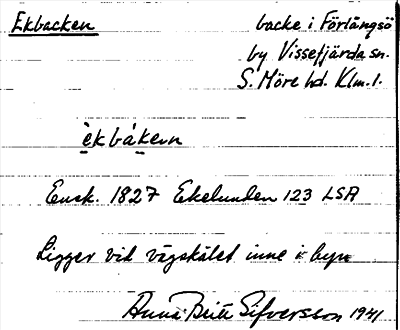 Ekbacken
backe i Förlångsö
by Vissefjärda sn.
S. Möre hd. Klm. l.
èkbákern
Ensk. 1827 Ekelunden 123 LSA
Ligger vid vägskälet inne i byn
Anna-Britt Sifversson 1941